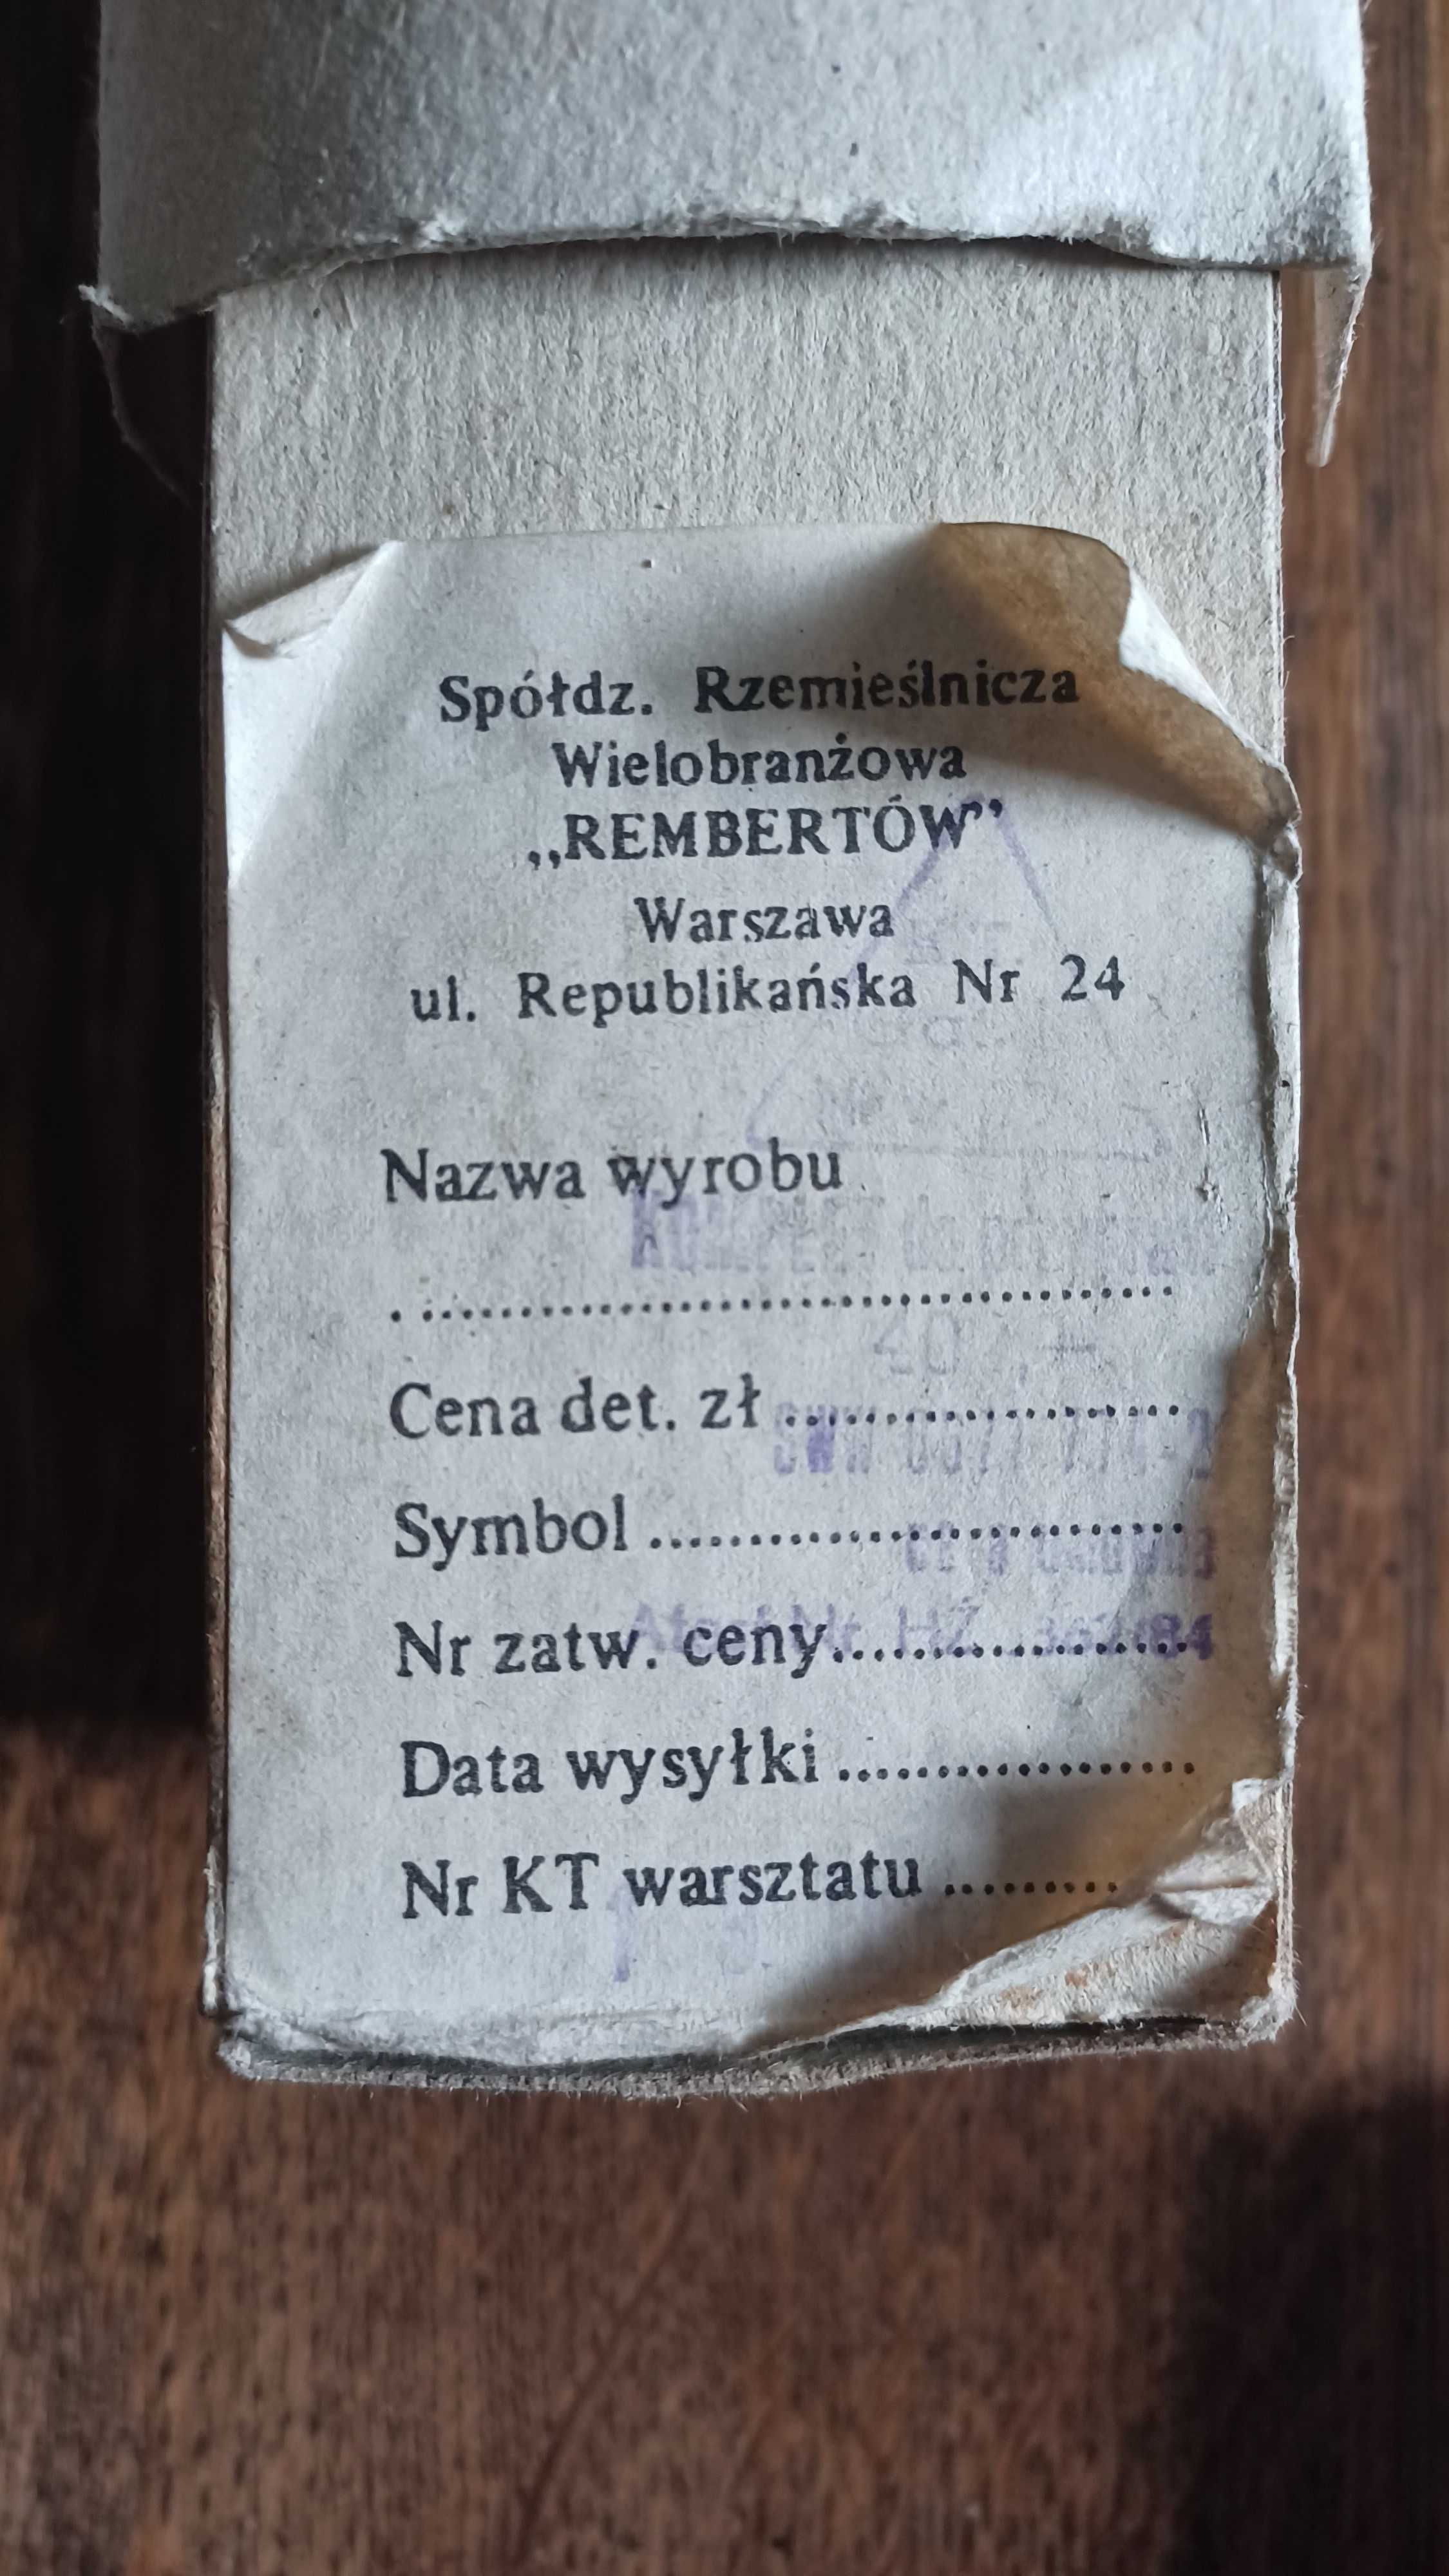 Spółdz. Rzemieślnicza
Wielobranżowa
„REMBERTÓW”
Warszawa
ul. Republikańska Nr 24
Nazwa wyrobu
. ........................................
Cena det. zł ....................
SWW
Symbol ...........................
Nr zatw. ceny..................
84
Data wysyłki ..................
Nr KT warsztatu .........